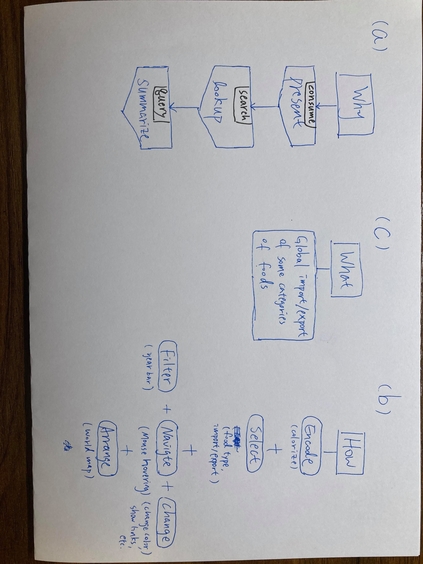 (a)
Why
consume
present
search
lookup
query
summarize
(c)
What
Global import/export
of some categories
of foods
(b)
How
Encode
(colorize)
+
Select
(food type,
import/export)
+
Filter + Navigte + Change
(year bar)
(Mouse hovering)
(change color,
show links,
etc.
+
Arrange
(world map)